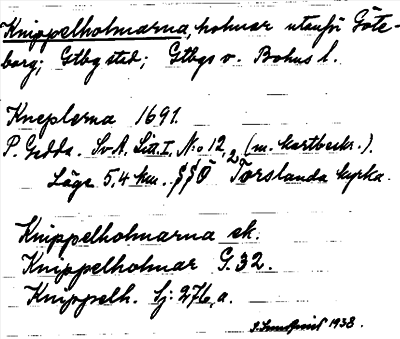 Knippelholmarna, holmar utanför Göte-
borg; Gtbg stad; Gtbgs o. Bohus l.
Kneplerna 1691.
P. Gedda. Sv. A. Litt. I, N:o 12, 2 (m. kartbeskr.).
Läge 5,4 km. SSÖ Torslanda kyrka.
Knippelholmarna ek.
Knippelholmar G. 32.
Knippelh. Sj: 276, a.
1938.